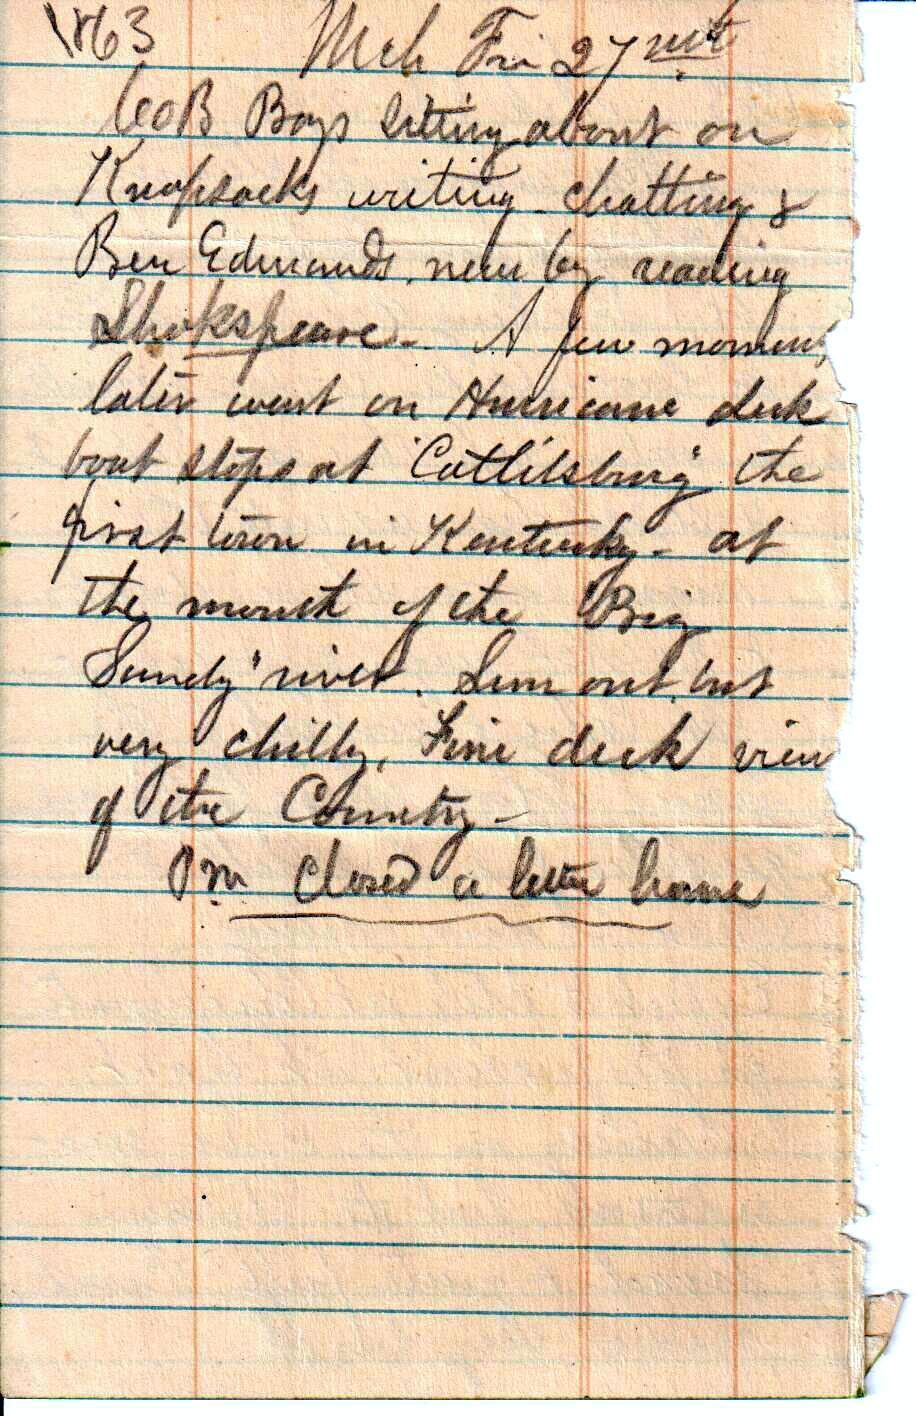 1863 Mch Fri 27
Co B Boys sitting about on
Knapsacks writing - chatting &
Ben Edmands near by reading
Shakspeare - A few moments
later went on Hurricane deck
boat stops at "Catlitsburg" the
first town in Kentucky - at
the mouth of the "Big
Sandy" river. Sun out but
very chilly, Fine deck view
of the Country -
Pm closed a letter home